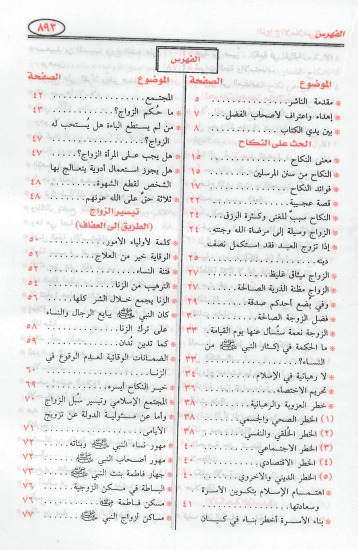 الفهرس
٨٩٣
الفهرس
الموضوع الصفحة
* مقدمة الناشر ٥
* إهداء واعتراف لأصحاب الفضل ٧
* بين يدي الكتاب ٨
الحث على النكاح
* معنى النكاح ١٥
* النكاح من سنن المرسلين ١٥
* فوائد النكاح ١٧
* قصة عجيبة ٢٢
* النكاح سبب للغنى وكثرة الرزق ٢٤
* الزواج وسيلة إلى مرضاة الله وجنته ٢٤
* إذا تزوج العبد فقد استكمل نصف
دينه ٢٥
* الزواج ميثاق غليظ ٢٧
* الزواج مظنة الذرية الصالحة ٢٧
* وفي بضع أحدكم صدقة ٢٩
* فضل الزوجة الصالحة ٣٠
* الزوجة نعمة ستُسأل عنها يوم القيامة ٣٣
* ما الحكمة في إكثار النبي ﷺ من
النساء؟ ٣٣
* لا رهبانية في الإسلام ٣٤
* تحريم الاختصاء ٣٦
* خطر العزوبة والرهبانية ٣٨
* (١) الخطر الصحي والجسمي ٣٨
* (٢) الخطر الخلقي والنفسي ٣٨
* (٣) الخطر الاجتماعي ٤٠
* (٤) الخطر الاقتصادي ٤٠
* (٥) الخطر الديني والأخروي ٤٠
* اهتمام الإسلام بتكوين الأسرة
وسعادتها ٤١
* بناء الأسرة أخطر بناء في كيان
الموضوع الصفحة
المجتمع ٤٢
* ما حُكم الزواج؟ ٤٣
* من لم يستطع الباءة هل يُستحب له
الزواج؟ ٤٧
* هل يجب على المرأة الزواج؟ ٤٧
* هل يجوز استعمال أدوية يتعالج بها
الشخص لقطع الشهوة ٤٨
* ثلاثة حق على الله عونهم ٤٨
تيسير الزواج
(الطريق إلى العفاف)
* كلمة لأولياء الأمور ٥٠
* الوقاية خير من العلاج ٥١
* فتنة النساء ٥٢
* الترهيب من الزنا ٥٤
* الزنا يجمع خلال الشر كلها ٥٦
* كان النبي ﷺ يبايع الرجال والنساء
على ترك الزنا ٥٨
* كما تدين تُدان ٥٩
* الضمانات الوقائية لعدم الوقوع في
الزنا ٦٠
* خير النكاح أيسره ٦٩
* المجتمع الإسلامي وتيسير سُبل الزواج ٧٠
* وأما عن مسئولية الدولة عن تزويج
الأيامى ٧١
* مهور نساء النبي ﷺ وبناته ٧٢
* مهور أصحاب النبي ﷺ ٧٢
* جهاز فاطمة بنت النبي ﷺ ٧٣
* البساطة في مسكن الزوجية ٧٦
* مسكن فاطمة ٧٦
* مساكن أزواج النبي ﷺ ٧٧